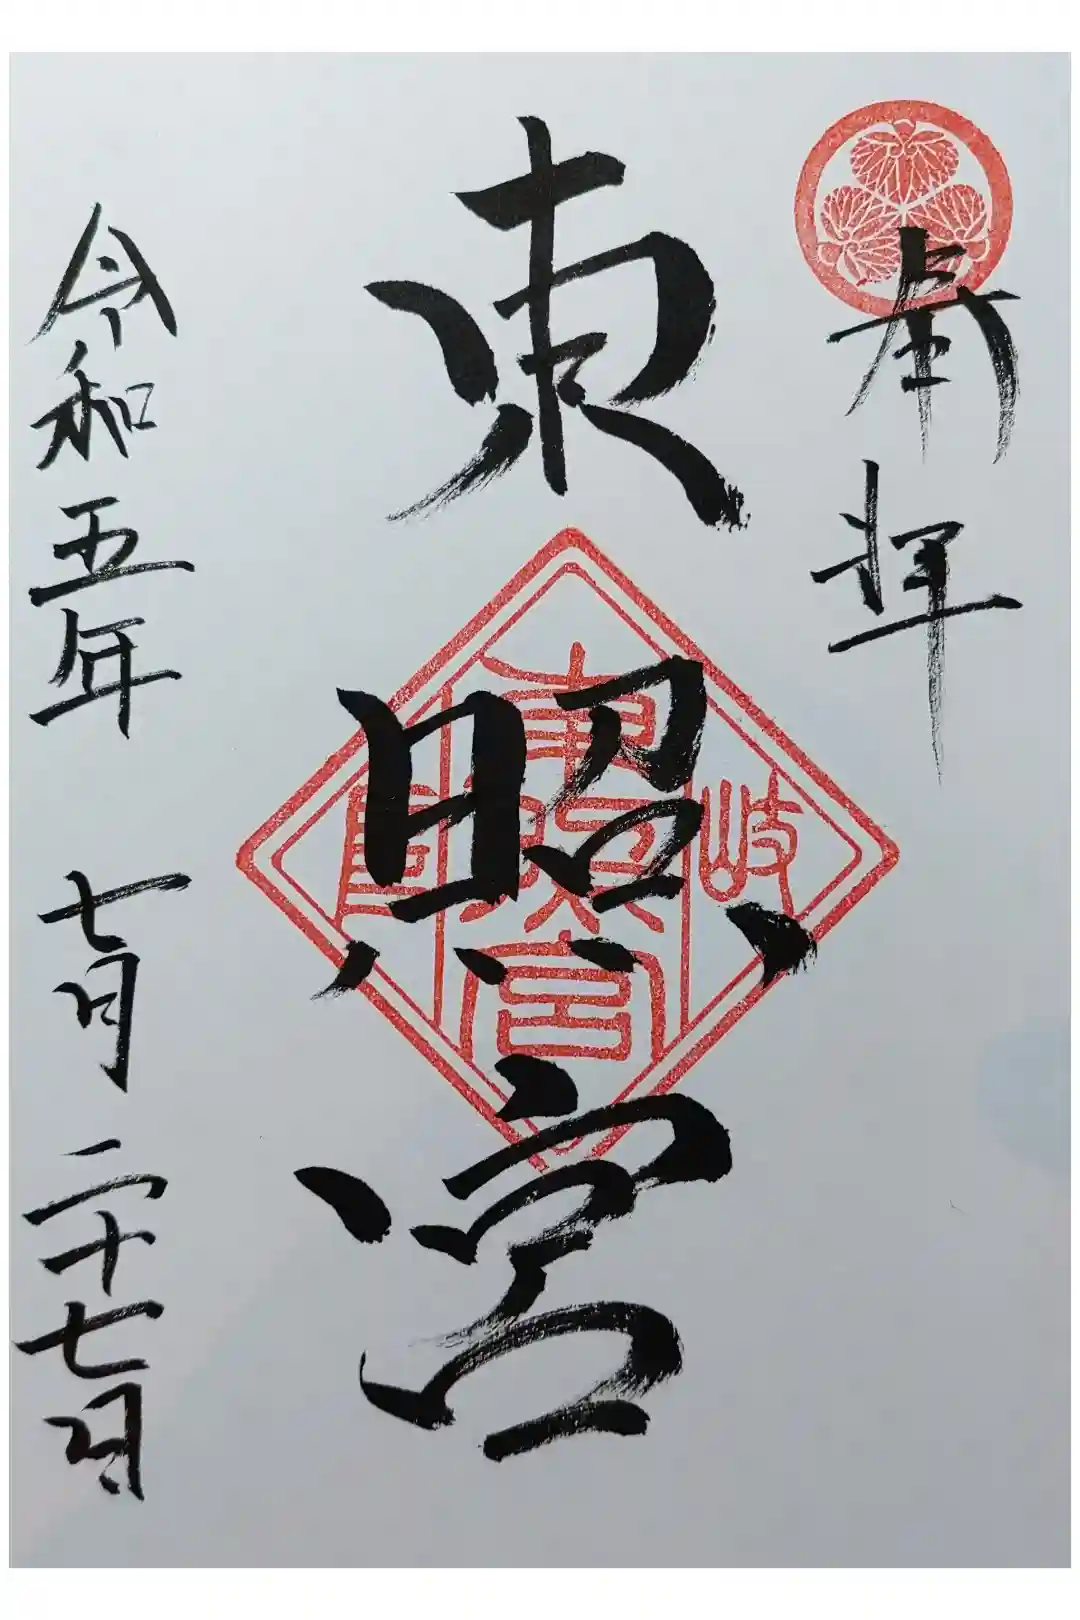 奉拝
東照宮
岐
東照宮
阜
令和五年七月二十七日